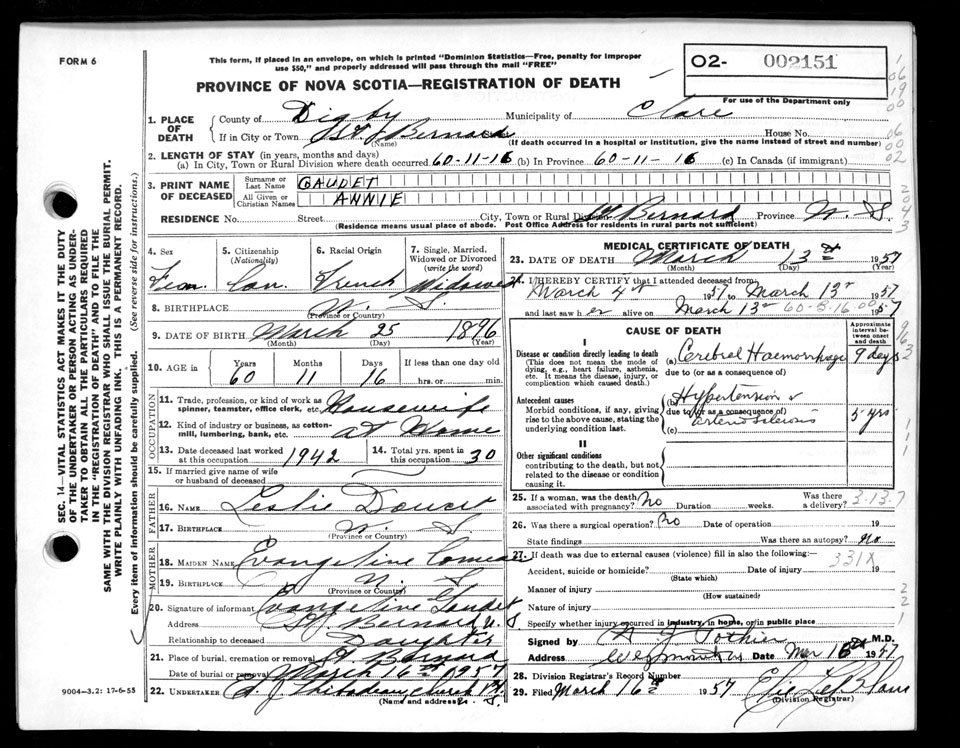 FORM 6
This form, if placed in an envelope, on which is printed "Dominion Statistics—Free, penalty for improper
use $50," and properly addressed will pass through the mail "FREE"
O2- 002151
For use of the Department only
PROVINCE OF NOVA SCOTIA—REGISTRATION OF DEATH
1. PLACE OF DEATH
County of Digby Municipality of Clare
If in City or Town St. Bernard House No.
(Name) (If death occurred in hospital or institution, give the name instead of street and number)
2. LENGTH OF STAY (in years, months and days)
(a) In City, Town or Rural Division where death occurred 60-11-16 (b) In Province 60-11-16 (c) In Canada (if immigrant)
3. PRINT NAME OF DECEASED
Surname or Last Name GAUDET
All Given or Christian Names ANNIE
RESIDENCE No. Street City, Town or Rural Division St. Bernard Province N. S.
(Residence means usual place of abode. Post Office Address for residents in rural parts not sufficient)
4. Sex Fem.
5. Citizenship (Nationality) Can.
6. Racial Origin French
7. Single, Married, Widowed or Divorced (write the word) Widowed
8. BIRTHPLACE N. S.
(Province or Country)
9. DATE OF BIRTH March 25 1896
(Month) (Day) (Year)
10. AGE Years 60 Months 11 Days 16 If less than one day old hrs. or min.
OCCUPATION
11. Trade, profession, or kind of work as spinner, teamster, office clerk, etc. Housewife
12. Kind of industry or business, as cotton-mill, lumbering, bank, etc. at Home
13. Date deceased last worked at this occupation 1942
14. Total yrs. spent in this occupation 30
15. If married give name of wife or husband of deceased
FATHER
16. NAME Leslie Doucet
17. BIRTHPLACE N. S.
(Province or Country)
MOTHER
18. MAIDEN NAME Evangeline
19. BIRTHPLACE N. S.
(Province or Country)
20. Signature of informant Evangeline Gaudet
Address St. Bernard N. S.
Relationship to deceased Daughter
21. Place of burial, cremation or removal St. Bernard
Date of burial or removal March 16 1957
22. UNDERTAKER Thibodeau, Church Pt.
(Name and address) N. S.
MEDICAL CERTIFICATE OF DEATH
23. DATE OF DEATH March 13 1957
(Month) (Day) (Year)
24. I HEREBY CERTIFY that I attended deceased from
March 4 1957 to March 13 1957
and last saw her alive on March 13 1957
CAUSE OF DEATH
Approximate interval between onset and death
I
Disease or condition directly leading to death
(This does not mean the mode of dying, e.g., heart failure, asthenia, etc. It means the disease, injury, or complication which caused death.)
(a) Cerebral Haemorrhage 9 days
due to (or as a consequence of)
Antecedent causes
Morbid conditions, if any, giving rise to the above cause, stating the underlying condition last.
(b) Hypertension &
due to (or as a consequence of) 5 yrs
(c) arteriosclerosis
II
Other significant conditions
contributing to the death, but not related to the disease or condition causing it.
25. If a woman, was the death associated with pregnancy? No Duration weeks. Was there a delivery?
3.13.7
26. Was there a surgical operation? No Date of operation 19
State findings Was there an autopsy? No
27. If death was due to external causes (violence) fill in also the following:
331X
Accident, suicide or homicide? Date of injury 19
(State which)
Manner of injury
(How sustained)
Nature of injury
Specify whether injury occurred in industry, in home, or in public place
Signed by Pothier M.D.
Address Weymouth Date Mar 16 1957
28. Division Registrar's Record Number
29. Filed March 16 1957 LeBlanc
(Division Registrar)
SEC. 14—VITAL STATISTICS ACT MAKES IT THE DUTY
OF THE UNDERTAKER OR PERSON ACTING AS UNDER-
TAKER TO OBTAIN ALL THE PARTICULARS REQUIRED
IN THE "REGISTRATION OF DEATH" AND TO FILE THE
SAME WITH THE DIVISION REGISTRAR WHO SHALL ISSUE THE BURIAL PERMIT.
WRITE PLAINLY WITH UNFADING INK. THIS IS A PERMANENT RECORD.
Every item of information should be carefully supplied. (See reverse side for instructions.)
9004-3.2: 17-6-55